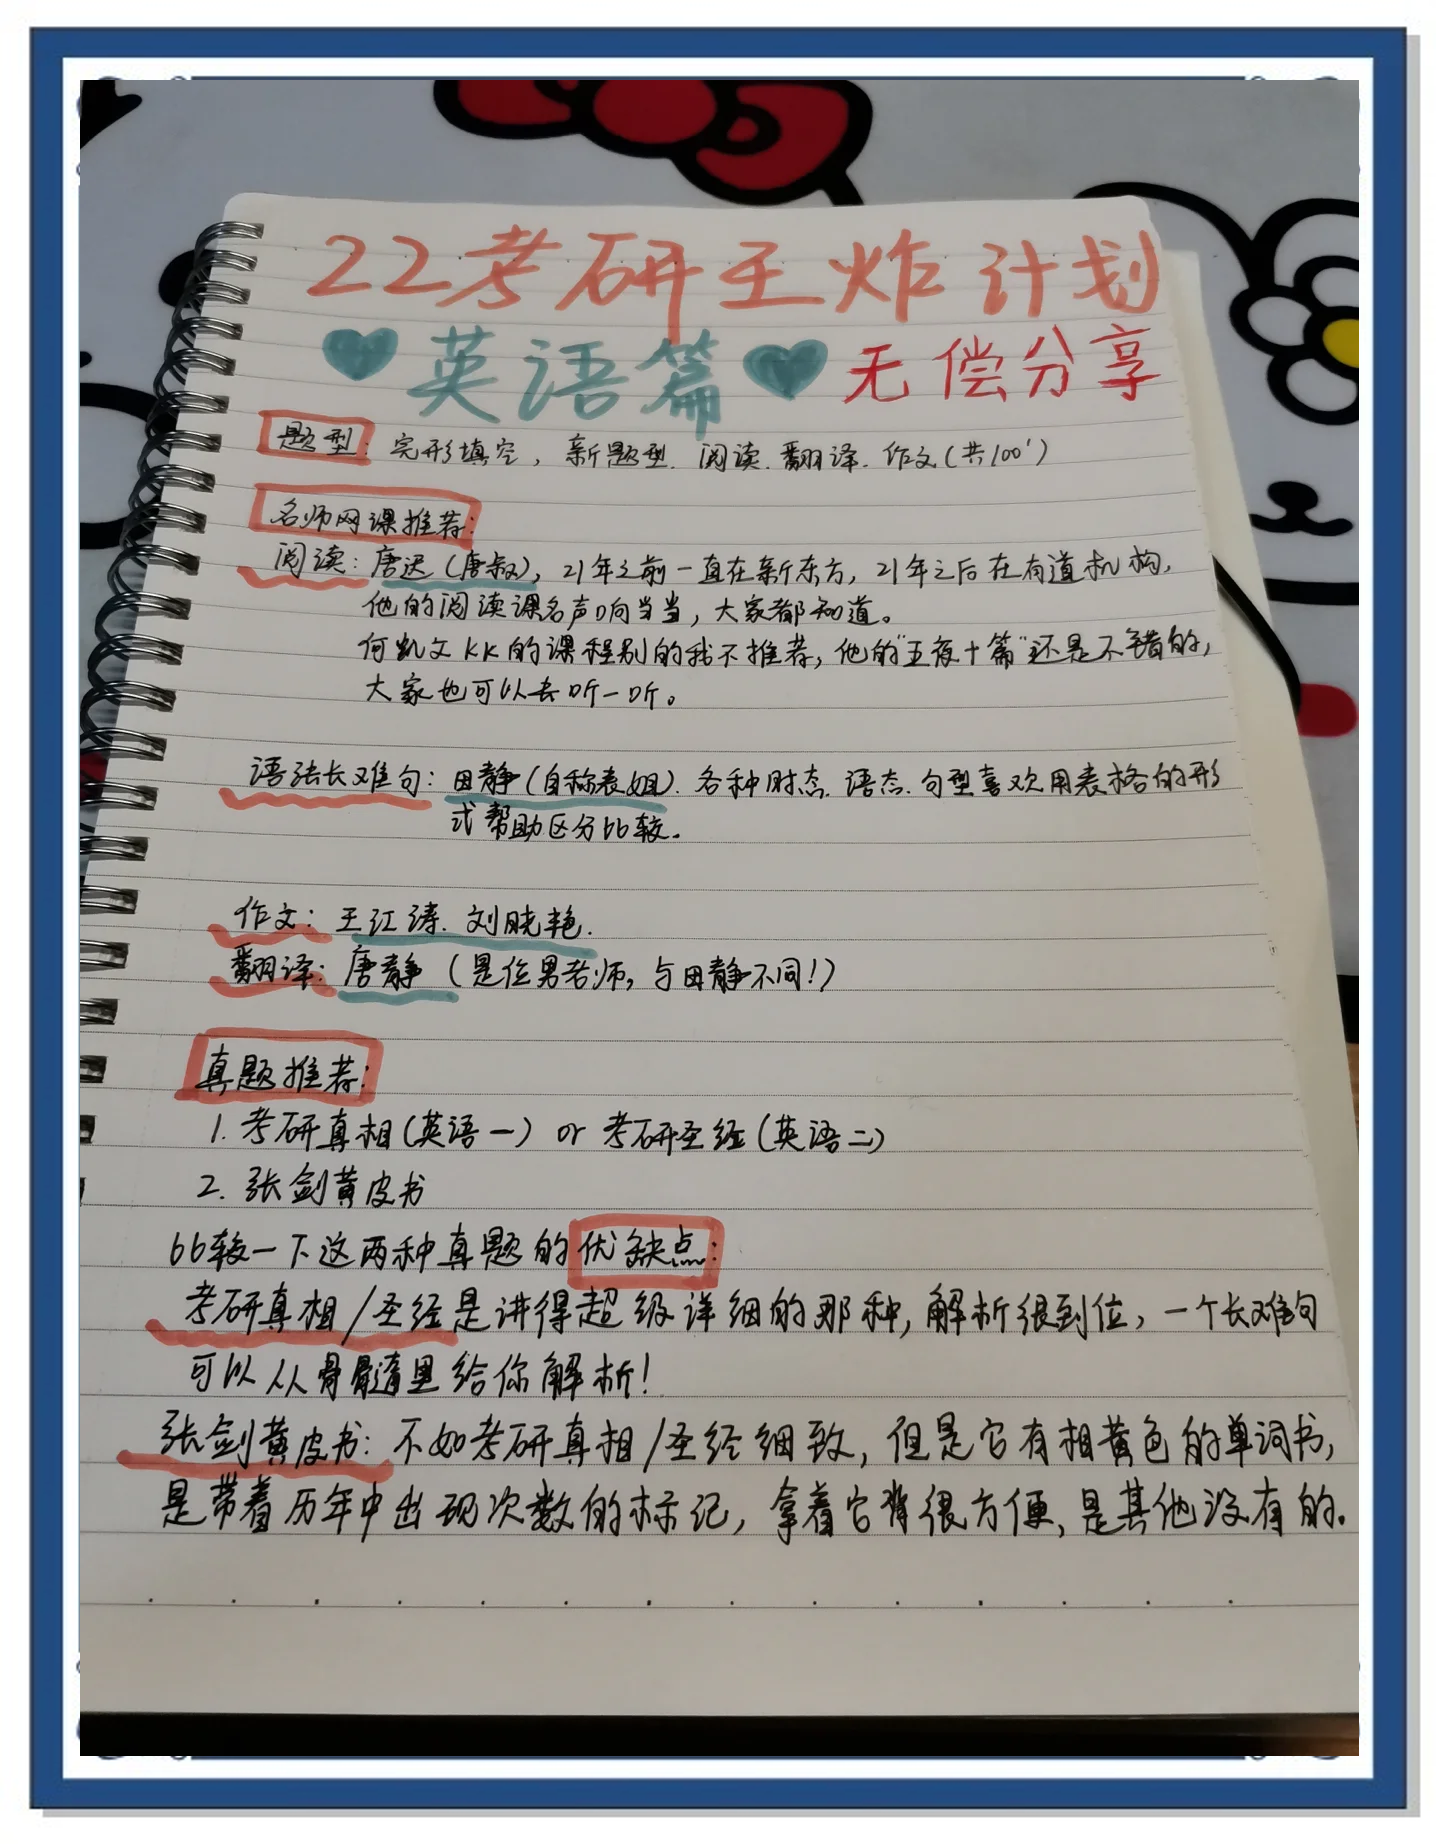 22考研王炸计划
英语篇 无偿分享
题型：完形填空，新题型、阅读、翻译、作文(共100')
名师网课推荐：
阅读：唐迟(唐叔)，21年之前一直在新东方，21年之后在有道机构，
他的阅读课名声响当当，大家都知道。
何凯文KK的课程别的我不推荐，他的"五夜十篇"还是不错的，
大家也可以去听一听。
语法长难句：田静(自称表姐)、各种时态、语态、句型喜欢用表格的形
式帮助区分比较。
作文：王江涛、刘晓艳.
翻译：唐静（是位男老师，与田静不同！）
真题推荐：
1. 考研真相(英语一) or 考研圣经(英语二)
2. 张剑黄皮书
比较一下这两种真题的优缺点：
考研真相/圣经是讲得超级详细的那种，解析很到位，一个长难句
可以从骨髓里给你解析！
张剑黄皮书：不如考研真相/圣经细致，但是它有相黄色的单词书，
是带着历年中出现次数的标记，拿着它背很方便，是其他没有的。